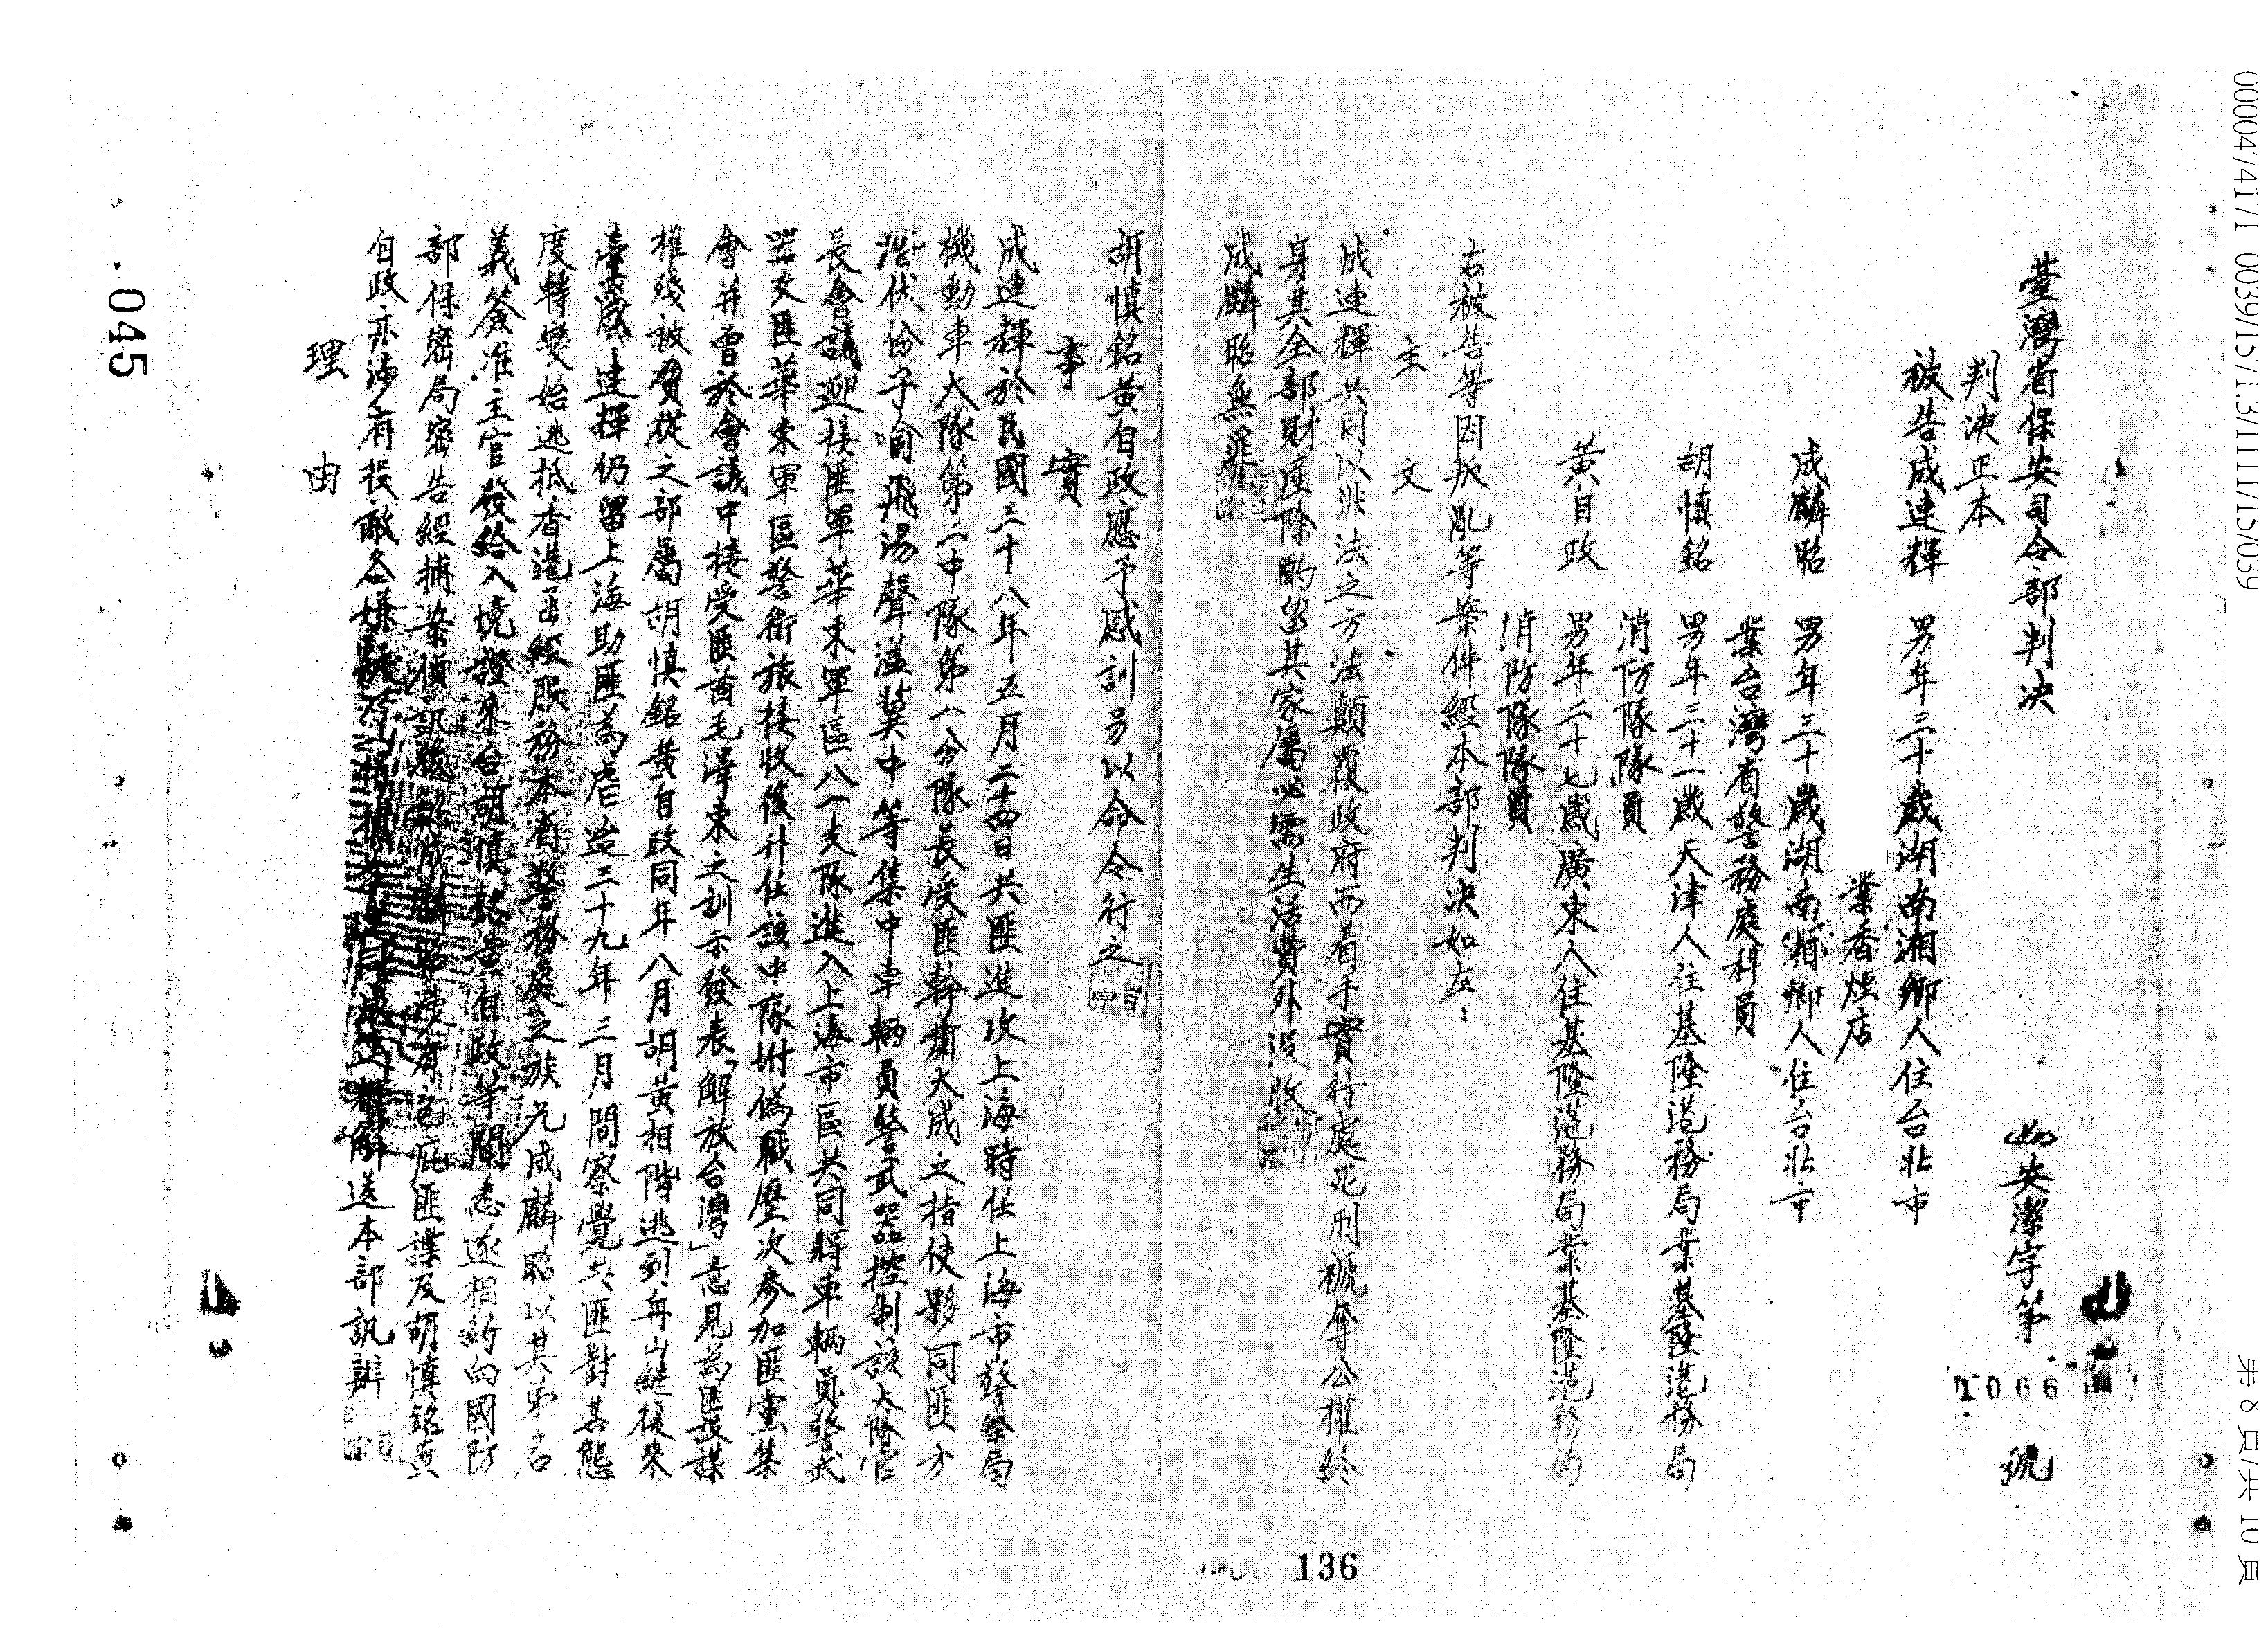 00004/41/1 0039/15/1.3/1111/15/039
第 8 頁/共 10 頁
臺灣省保安司令部判決
安潔字第 1066 號
判決正本
被告成連輝 男年三十歲湖南湘鄉人住台北市
業香煙店
成麟昭 男年三十歲湖南湘鄉人住台北市
業台灣省警務處科員
胡慎銘 男年三十一歲天津人住基隆港務局業基隆港務局
消防隊隊員
黃自政 男年二十七歲廣東人住基隆港務局業基隆港務局
消防隊隊員
右被告等因叛亂等案件經本部判決如左：
主文
成連輝共同以非法之方法顛覆政府而着手實行處死刑褫奪公權終
身其全部財產除酌留其家屬必需生活費外沒收
成麟昭無罪
胡慎銘黃自政應予感訓另以命令行之
事實
成連輝於民國三十八年五月二十四日共匪進攻上海時任上海市警察局
機動車大隊第二中隊第八分隊長受匪幹蕭大成之指使夥同匪方
潛伏份子喻飛湯聲溢莫中等集中車輛員警武器控制該大隊官
長會議迎接匪軍華東軍區八一支隊進入上海市區共同將車輛員警武
器交匪華東軍區警衛旅接收後升任該中隊坿偽職歷次參加匪黨集
會并曾於會議中接受匪酋毛澤東之訓示發表「解放台灣」意見為匪設謀
摧殘被脅從之部屬胡慎銘黃自政同年八月胡黃相階逃到舟山繼後來
臺成連輝仍留上海助匪為虐迨三十九年三月間察覺共匪對其態
度轉變始逃抵香港函經服務本省警務處之族兄成麟昭以其弟名
義簽准主官發給入境證來台胡慎銘黃自政等聞悉逐相約向國防
部保密局密告經捕案偵訊後認成麟昭涉有包庇匪諜及胡慎銘黃
自政亦涉有投敵各嫌解送本部訊辦
理由
045
136